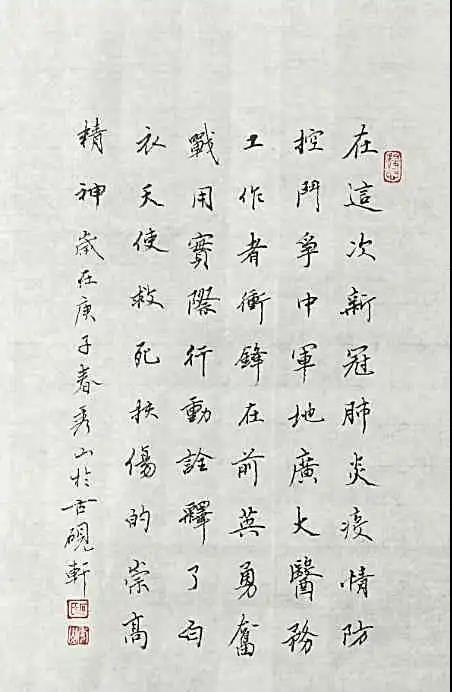 在這次新冠肺炎疫情防
控鬥爭中軍地廣大醫務
工作者衝鋒在前英勇奮
戰用實際行動詮釋了白
衣天使救死扶傷的崇高
精神 歲在庚子春秀山於古硯軒